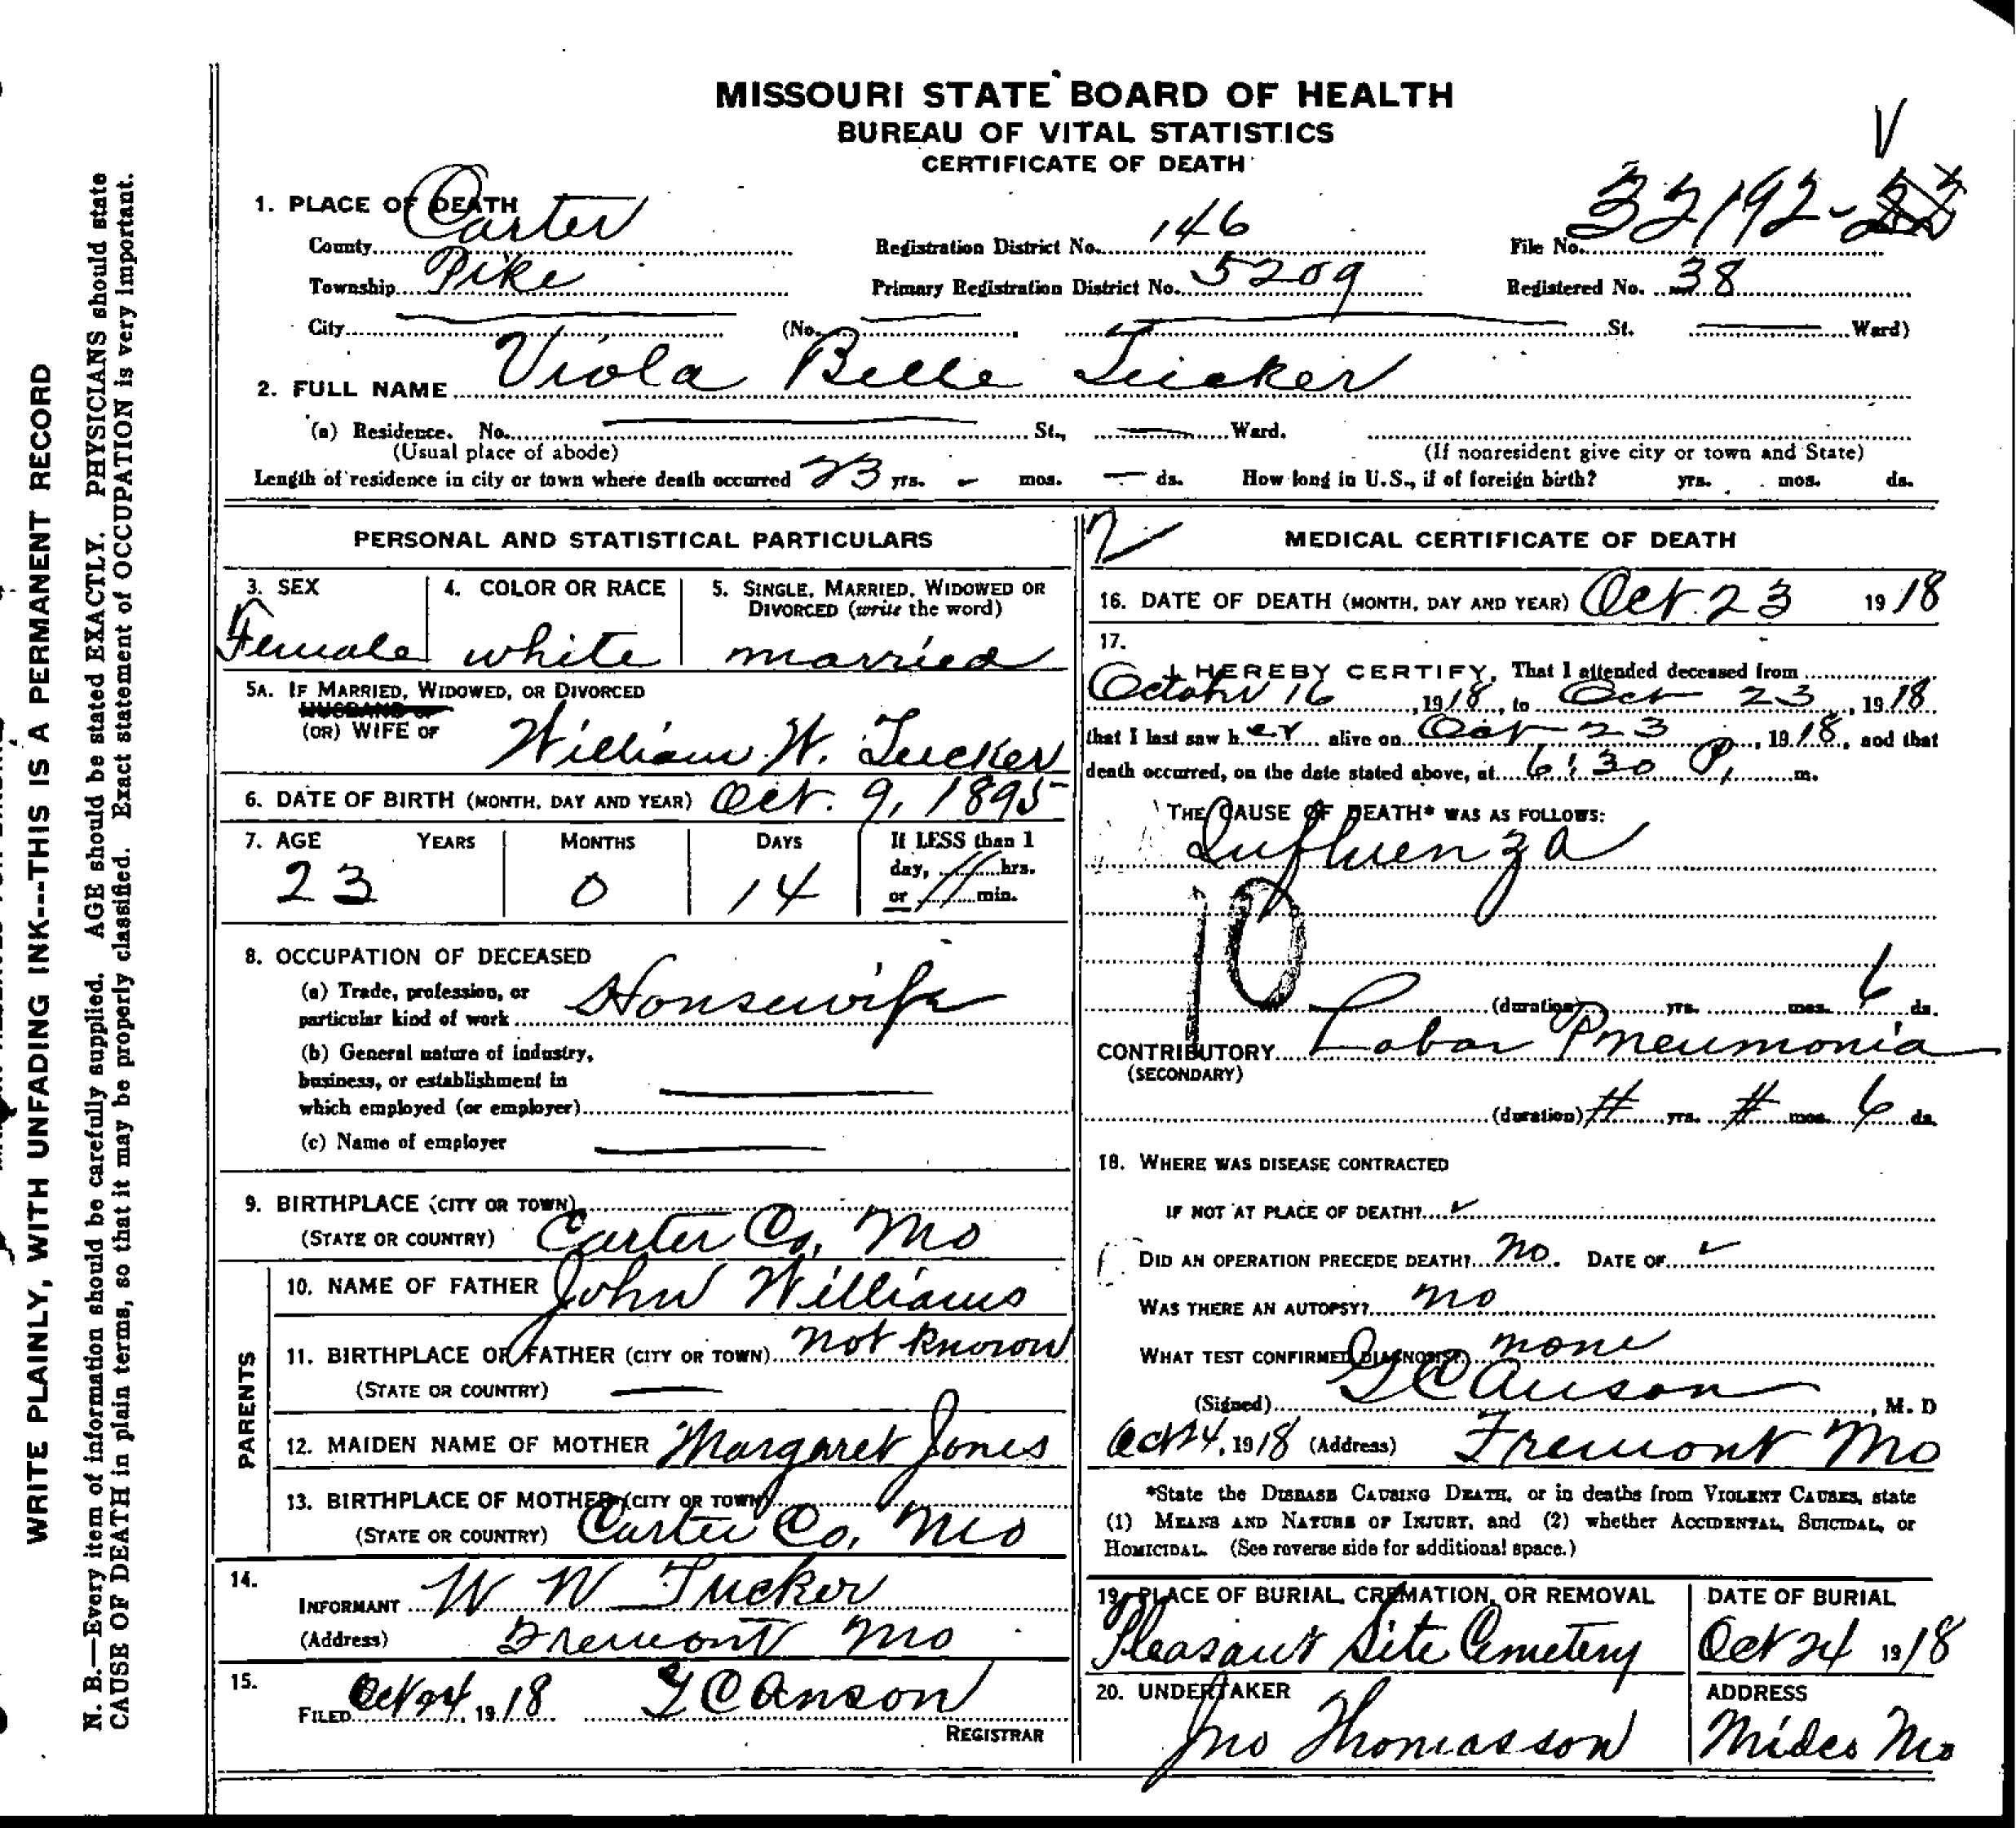 MISSOURI STATE BOARD OF HEALTH
BUREAU OF VITAL STATISTICS
CERTIFICATE OF DEATH
V
1. PLACE OF DEATH
County Carter Registration District No. 146 File No. 32192-
Township Pike Primary Registration District No. 5209 Registered No. 38
City (No. St. Ward)
2. FULL NAME Viola Belle Tucker
(a) Residence. No. St., Ward.
(Usual place of abode) (If nonresident give city or town and State)
Length of residence in city or town where death occurred 23 yrs. - mos. - ds. How long in U.S., if of foreign birth? yrs. mos. ds.
PERSONAL AND STATISTICAL PARTICULARS
3. SEX 4. COLOR OR RACE 5. SINGLE, MARRIED, WIDOWED OR DIVORCED (write the word)
Female white married
5A. IF MARRIED, WIDOWED, OR DIVORCED
HUSBAND OF
(OR) WIFE OF William W. Tucker
6. DATE OF BIRTH (MONTH, DAY AND YEAR) Oct. 9, 1895
7. AGE YEARS MONTHS DAYS If LESS than 1
day, hrs.
23 0 14 or min.
8. OCCUPATION OF DECEASED
(a) Trade, profession, or
particular kind of work Housewife
(b) General nature of industry,
business, or establishment in
which employed (or employer)
(c) Name of employer
9. BIRTHPLACE (CITY OR TOWN)
(STATE OR COUNTRY) Carter Co, Mo
PARENTS
10. NAME OF FATHER John Williams
11. BIRTHPLACE OF FATHER (CITY OR TOWN) not known
(STATE OR COUNTRY)
12. MAIDEN NAME OF MOTHER Margaret Jones
13. BIRTHPLACE OF MOTHER (CITY OR TOWN)
(STATE OR COUNTRY) Carter Co, Mo
14.
INFORMANT W W Tucker
(Address) Fremont Mo
15.
FILED Oct 24, 1918 Anson
REGISTRAR
2 MEDICAL CERTIFICATE OF DEATH
16. DATE OF DEATH (MONTH, DAY AND YEAR) Oct. 23 1918
17.
I HEREBY CERTIFY, That I attended deceased from
October 16, 1918, to Oct 23, 1918
that I last saw her alive on Oct 23, 1918, and that
death occurred, on the date stated above, at 6:30 P, m.
THE CAUSE OF DEATH* WAS AS FOLLOWS:
Influenza
10
(duration) yrs. mos. 6 ds.
CONTRIBUTORY Lobar Pneumonia
(SECONDARY)
(duration) # yrs. # mos. 6 ds.
18. WHERE WAS DISEASE CONTRACTED
IF NOT AT PLACE OF DEATH? ✓
DID AN OPERATION PRECEDE DEATH? no. DATE OF ✓
WAS THERE AN AUTOPSY? no
WHAT TEST CONFIRMED DIAGNOSIS? none
(Signed) Anson, M. D
Oct 24, 1918 (Address) Fremont Mo
*State the DISEASE CAUSING DEATH, or in deaths from VIOLENT CAUSES, state
(1) MEANS AND NATURE OF INJURY, and (2) whether ACCIDENTAL, SUICIDAL, or
HOMICIDAL. (See reverse side for additional space.)
19. PLACE OF BURIAL, CREMATION, OR REMOVAL DATE OF BURIAL
Pleasant Site Cemetery Oct 24 1918
20. UNDERTAKER ADDRESS
Jno Thomasson Mo
WRITE PLAINLY, WITH UNFADING INK---THIS IS A PERMANENT RECORD
N. B.—Every item of information should be carefully supplied. AGE should be stated EXACTLY. PHYSICIANS should state
CAUSE OF DEATH in plain terms, so that it may be properly classified. Exact statement of OCCUPATION is very important.